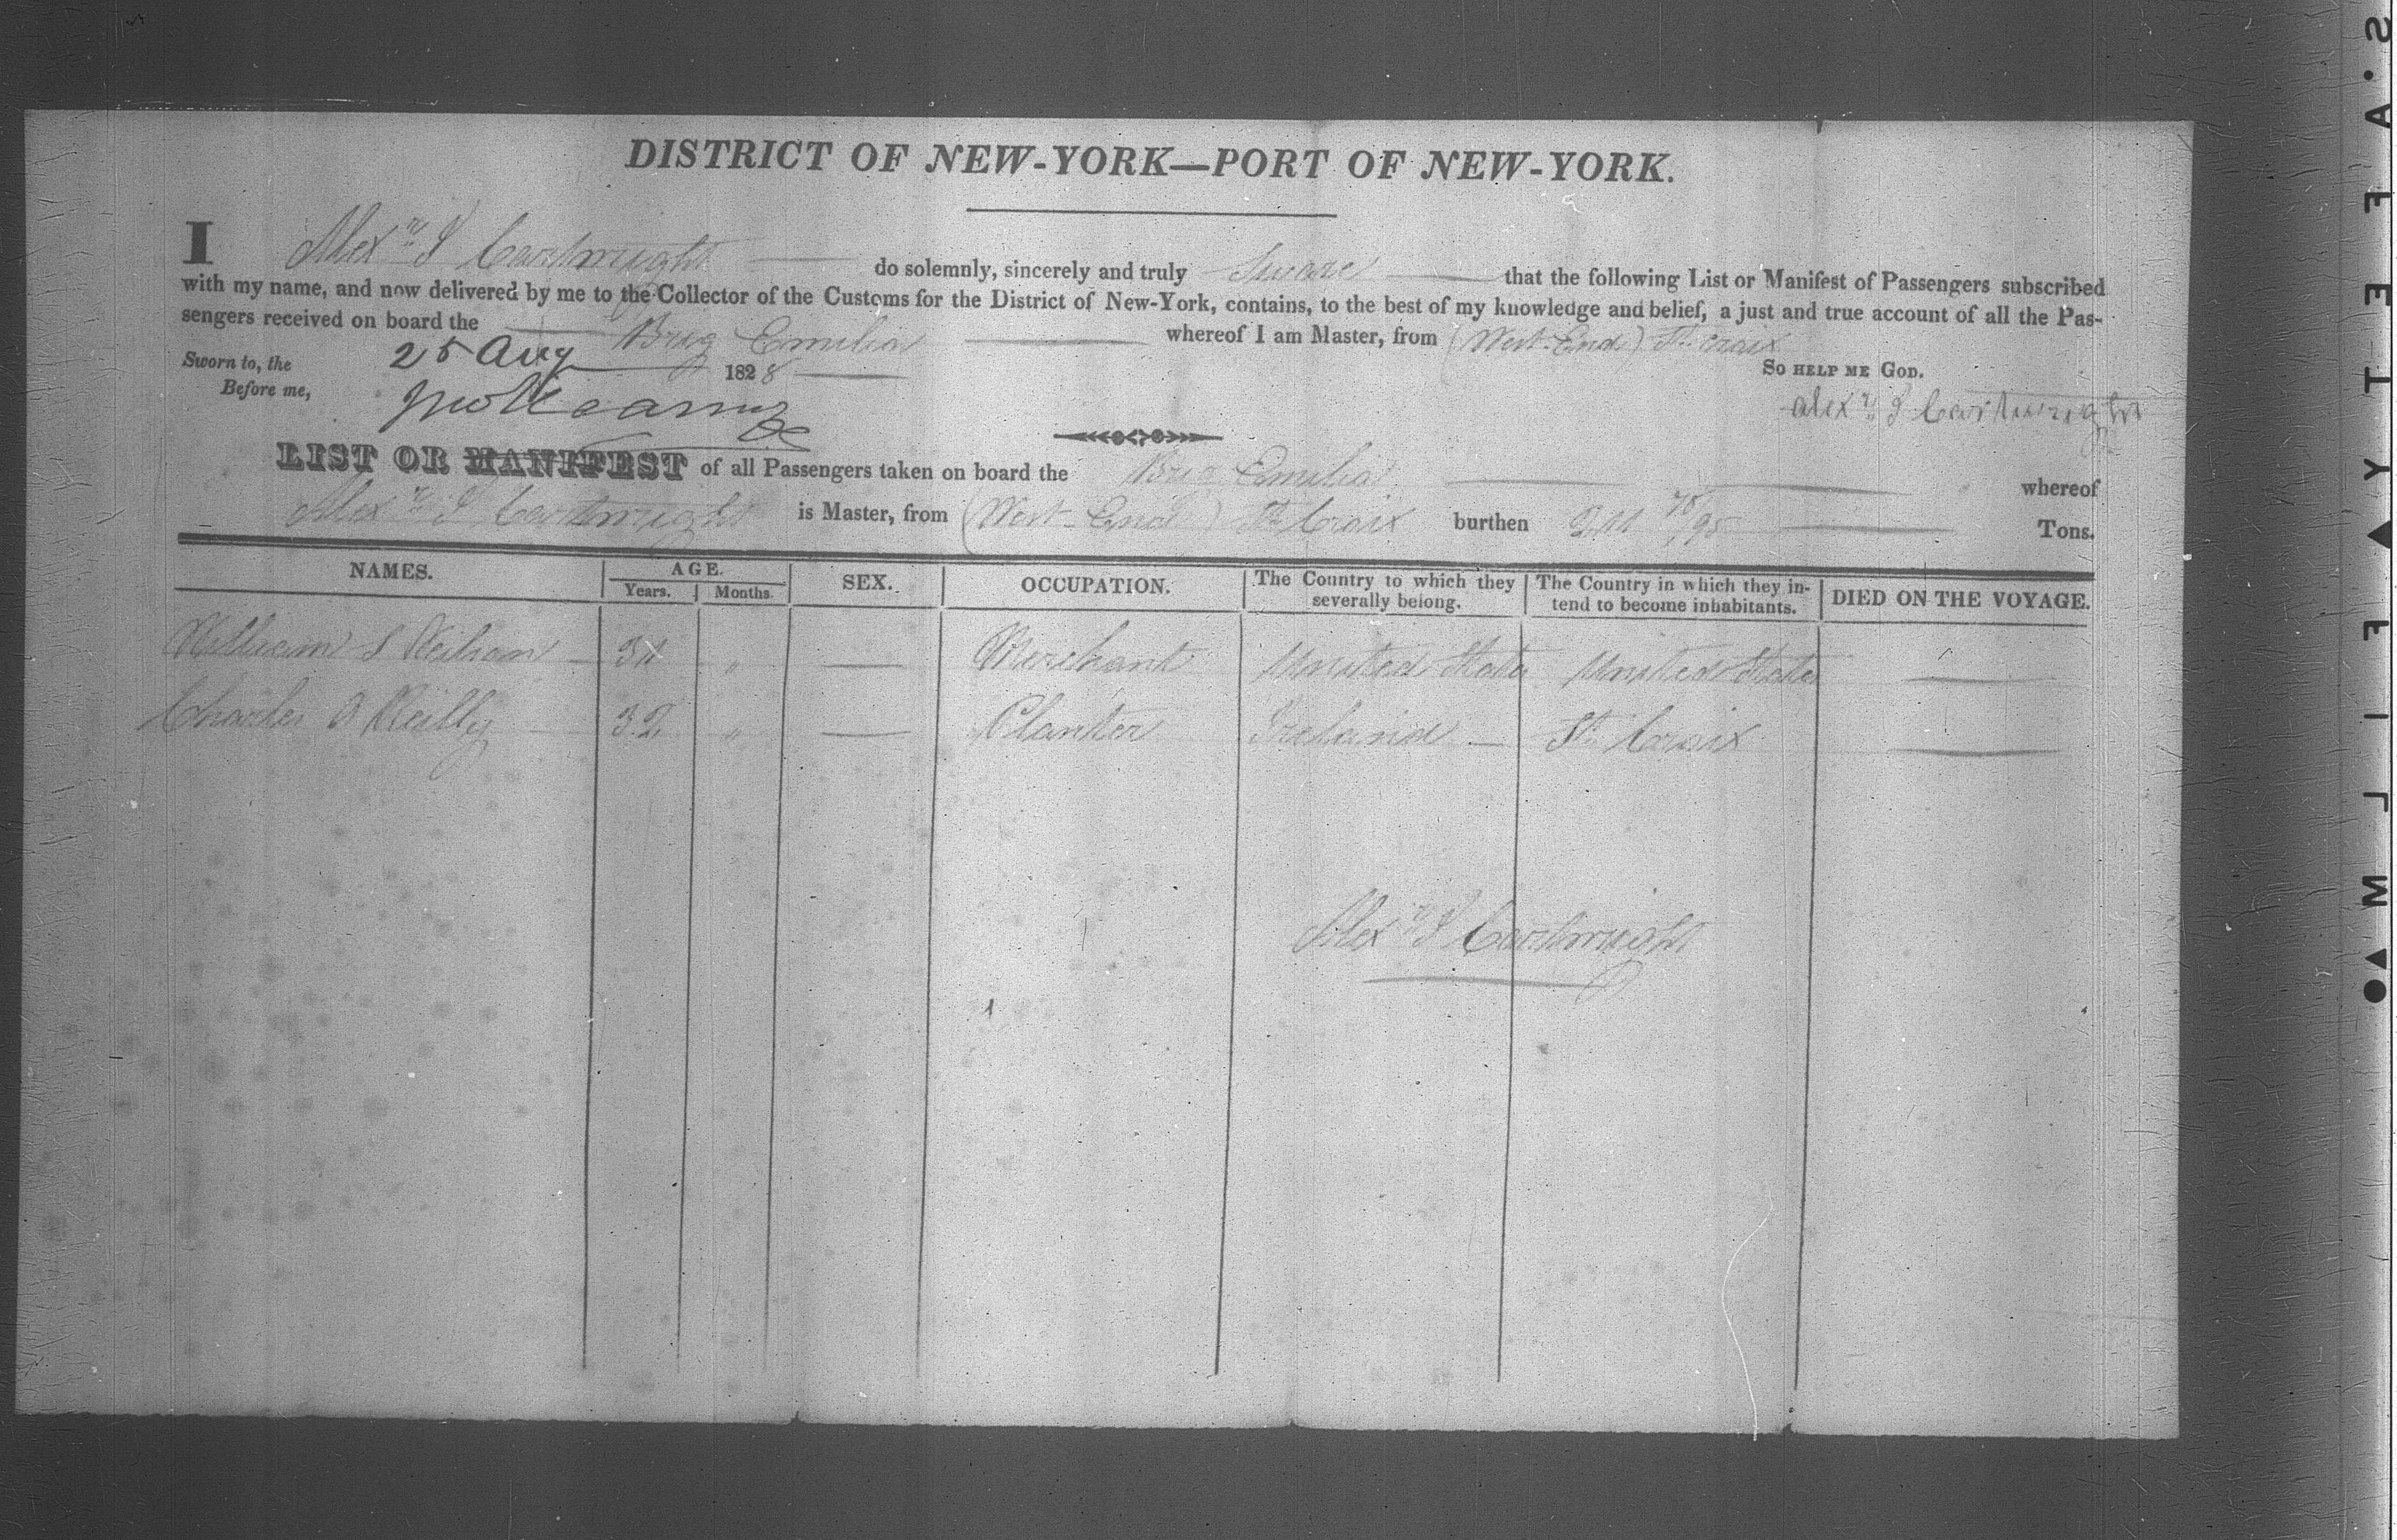 DISTRICT OF NEW-YORK—PORT OF NEW-YORK.
I Alexr J Cartwright do solemnly, sincerely and truly Sware that the following List or Manifest of Passengers subscribed
with my name, and now delivered by me to the Collector of the Customs for the District of New-York, contains, to the best of my knowledge and belief, a just and true account of all the Pas-
sengers received on board the Brig Emilia whereof I am Master, from (West-End) St. Croix
Sworn to, the 25 Aug 1828 So HELP ME GOD.
Before me, Alexr J Cartwright
LIST OR MANIFEST of all Passengers taken on board the Brig Emilia whereof
Alexr J Cartwright is Master, from (West-End) St. Croix burthen /95 Tons.
NAMES. AGE. SEX. OCCUPATION. The Country to which they severally belong. The Country in which they in-tend to become inhabitants. DIED ON THE VOYAGE.
Years. Months.
William S — " — Merchant United States United States —
Charles O Reilly — 32 " — Planter Ireland — St. Croix —
Alexr J Cartwright
SAFETY FILM